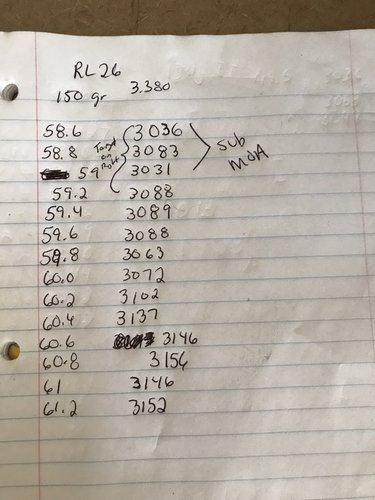 RL 26
150 gr 3.380
58.6 3036
58.8 3083
59 3031
Target on Right
sub MOA
59.2 3088
59.4 3089
59.6 3088
59.8 3063
60.0 3072
60.2 3102
60.4 3137
60.6 3146
60.8 3156
61 3146
61.2 3152